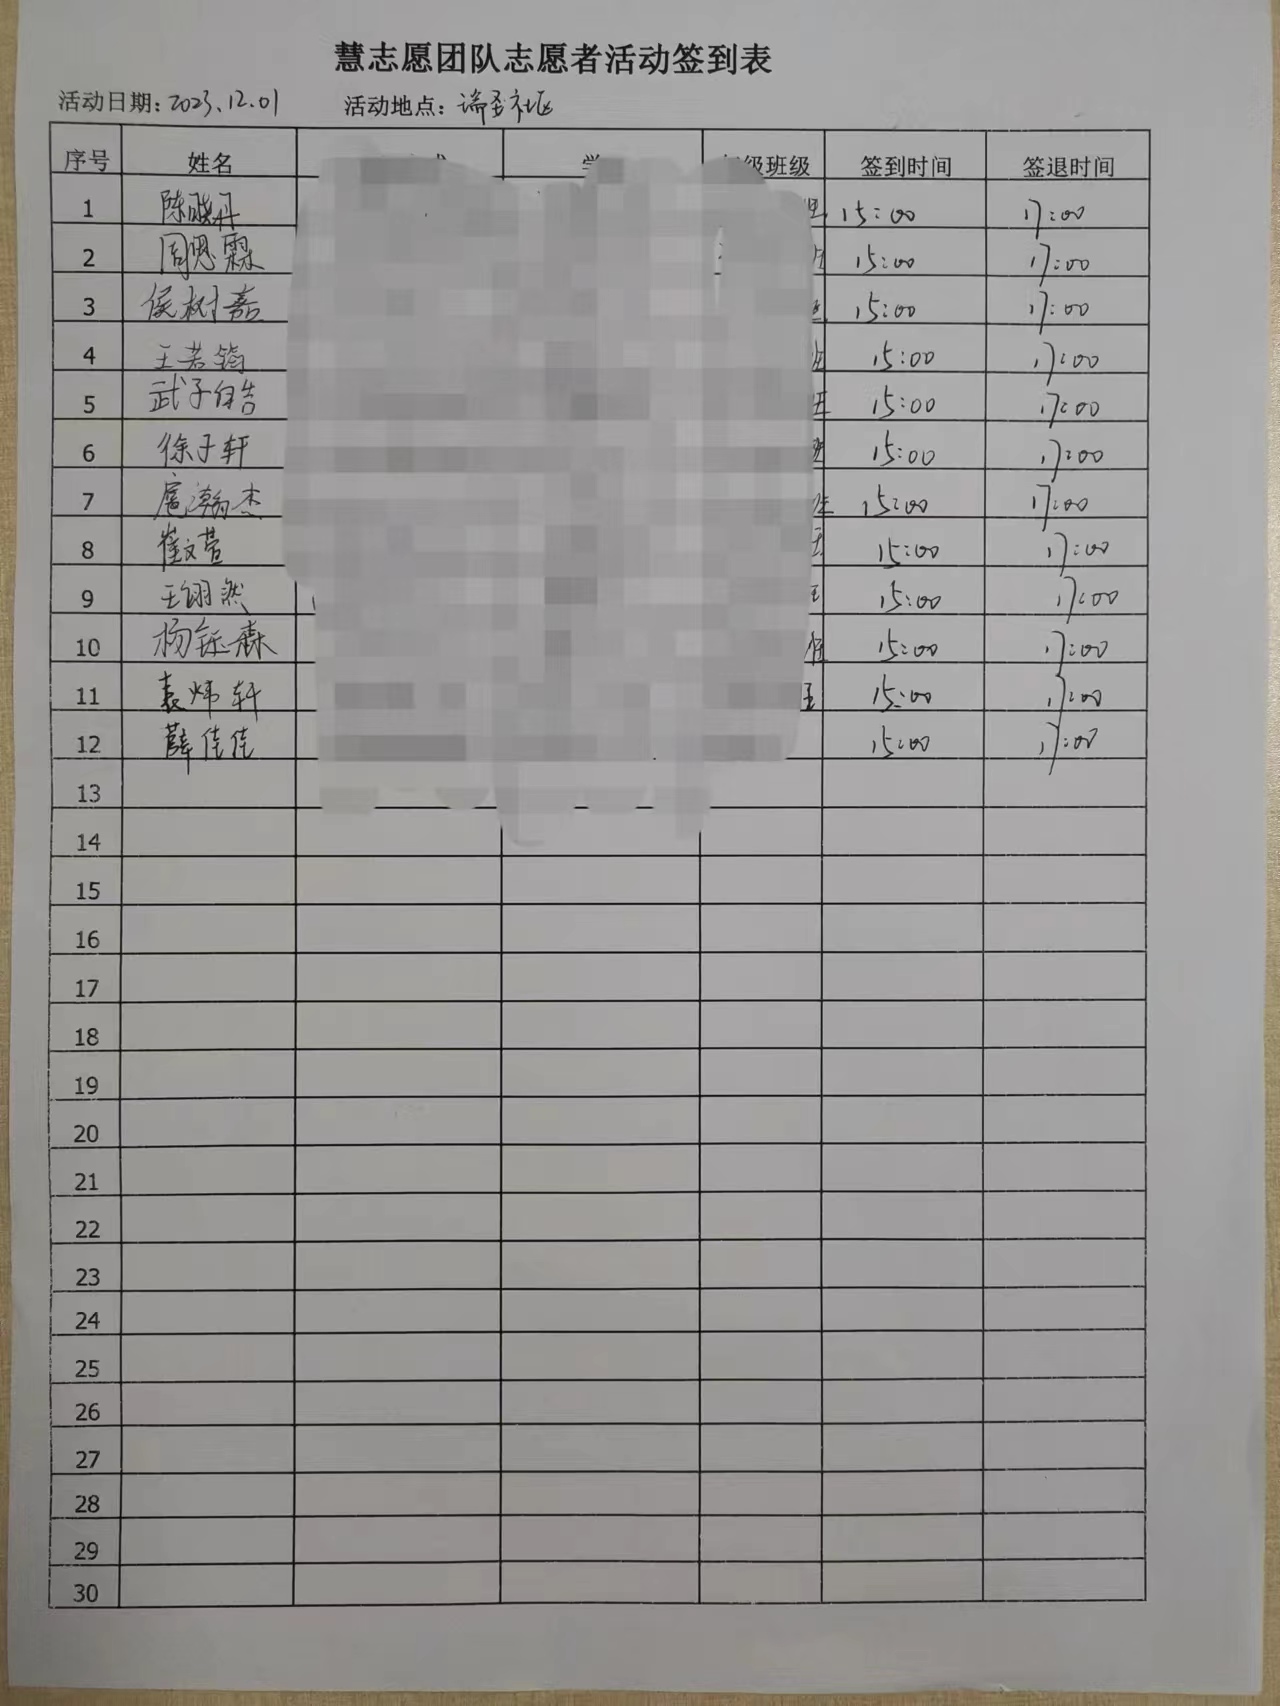 慧志愿团队志愿者活动签到表
活动日期：2023.12.01 活动地点：社区
序号 姓名 级班级 签到时间 签退时间
1 陈晓丹 15:00 17:00
2 周恩霖 15:00 17:00
3 侯树嘉 15:00 17:00
4 王若筠 15:00 17:00
5 武子皓 15:00 17:00
6 徐子轩 15:00 17:00
7 扈瀚杰 15:00 17:00
8 崔文萱 15:00 17:00
9 王翊然 15:00 17:00
10 杨钰森 15:00 17:00
11 袁炜轩 15:00 17:00
12 薛佳佳 15:00 17:00
13
14
15
16
17
18
19
20
21
22
23
24
25
26
27
28
29
30